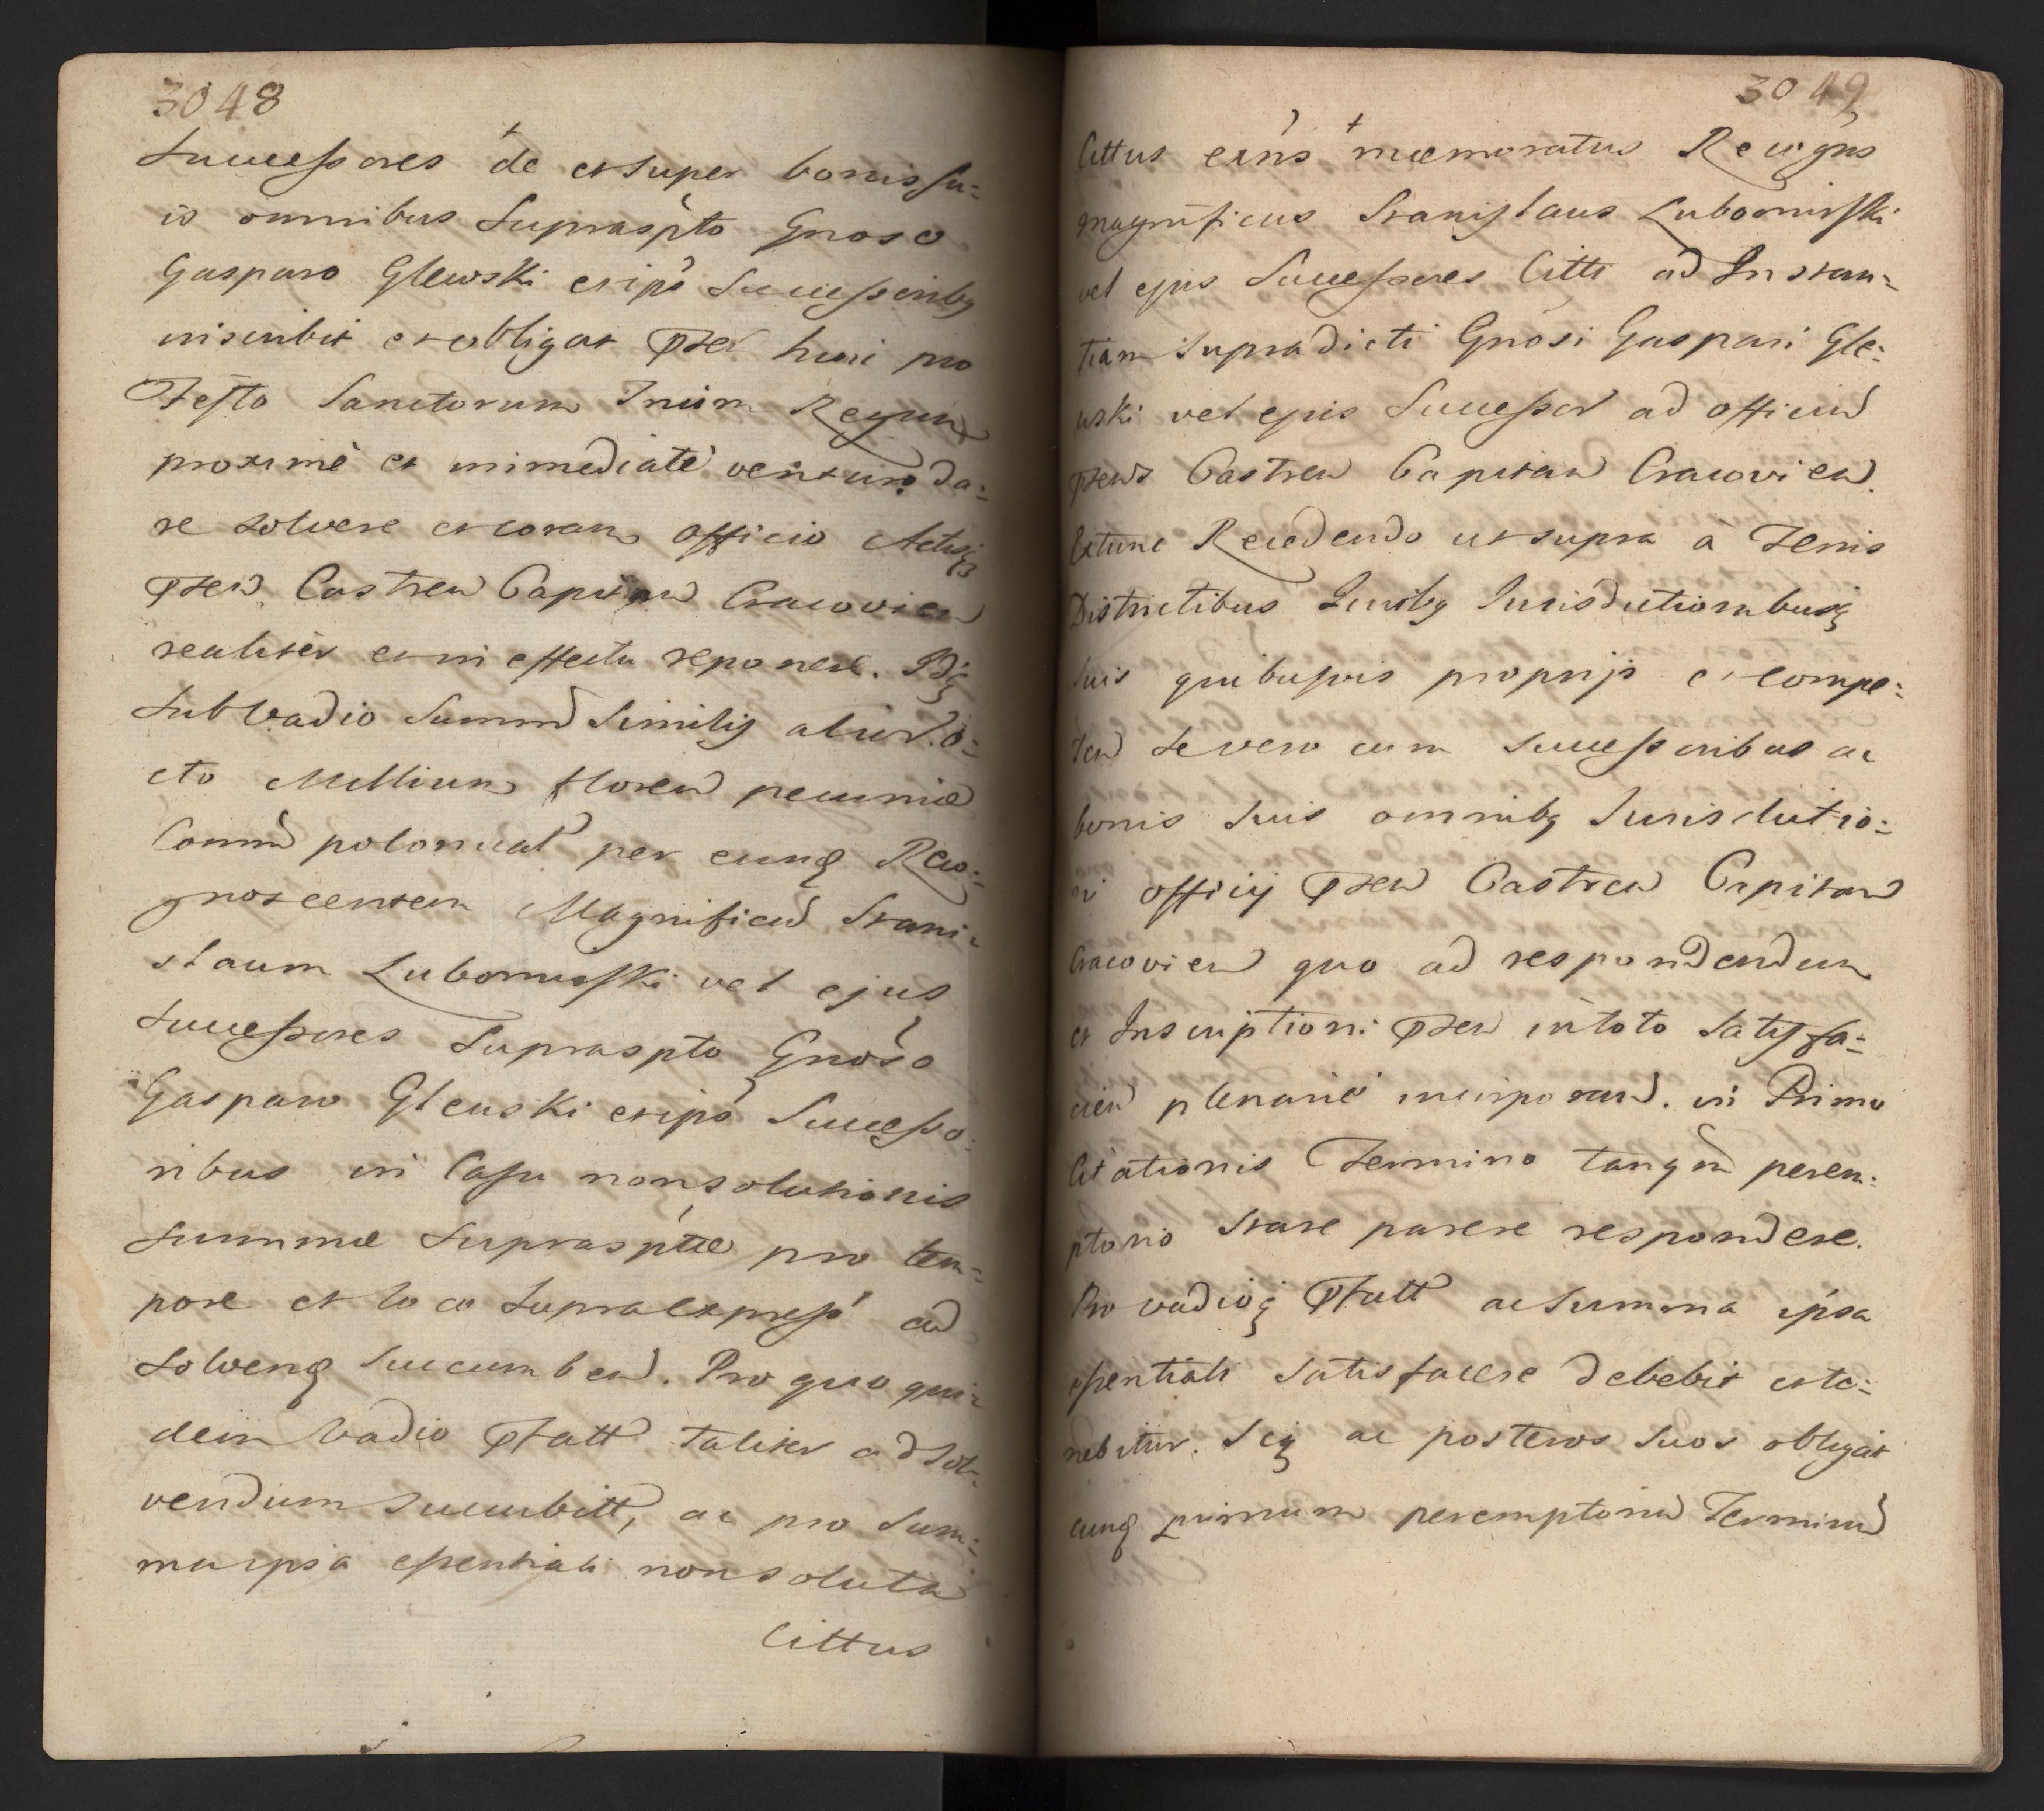 3048
Successores de et super bonis su=
is omnibus suprasṕto Gnoso
Gasparo Glewski et ip̃s Successoribq
inscribit et obligat Pten huci pro
Festo Sanctorum Trium Regum
proximè et immediatè venturo da=
re solvere et coram officio Actisq
Pten Castren Capitan Cracovien
realiter et in effectu reponere. Idq
Sub vadio Summ Similis aliar. o=
cto Millium floren pecuniæ
Comm̃ polonical per eunq Reco=
gnoscentem Magnificũ Stani=
slaum Lubomirski vel ejus
Successores Suprasp̃to Gnoso
Gasparo Gleuski et ip̃s Successo=
ribus in Casu non solutionis
Summæ Suprasp̃tæ pro tem=
pore et loco Supra express̃ ad
solvenq succumben. Pro quo qui=
dem Vadio Ptatt taliter ad Sol=
vendum Succubitt, ac pro Sum=
ma ipsa essentiali non soluta
Cittus
3049
Cittus exñs memoratus Recogñs
magnificus Stanislaus Lubomirski
vel ejus Successores Citti ad Instan=
tiam Supradicti Gnosi Gaspari Gle=
uski vel ejus Successor ad officiũ
Ptens Castren Capitan Cracovien.
Extunc Recedendo ut supra à Terris
Districtibus Juribq Jurisdictionibusq
suis quibusvis proprijs et compe=
ten se vero cum successoribus ac
bonis suis omnibq Jurisdictio=
ni officij Pten Castren Capitan
Cracovien quo ad respondendum
et Inscriptioni Pten in toto Satisfa=
cien plenariè incorporan. in Primo
Citationis Termino tanq̃m perem=
ptorio stare parere respondere.
Pro vadioq Ptatt ac Summa ipsa
essentiali satisfacere debebit et te=
nebitur. Seq ac posteros suos obligat
eunq primum peremptoriũ Terminũ